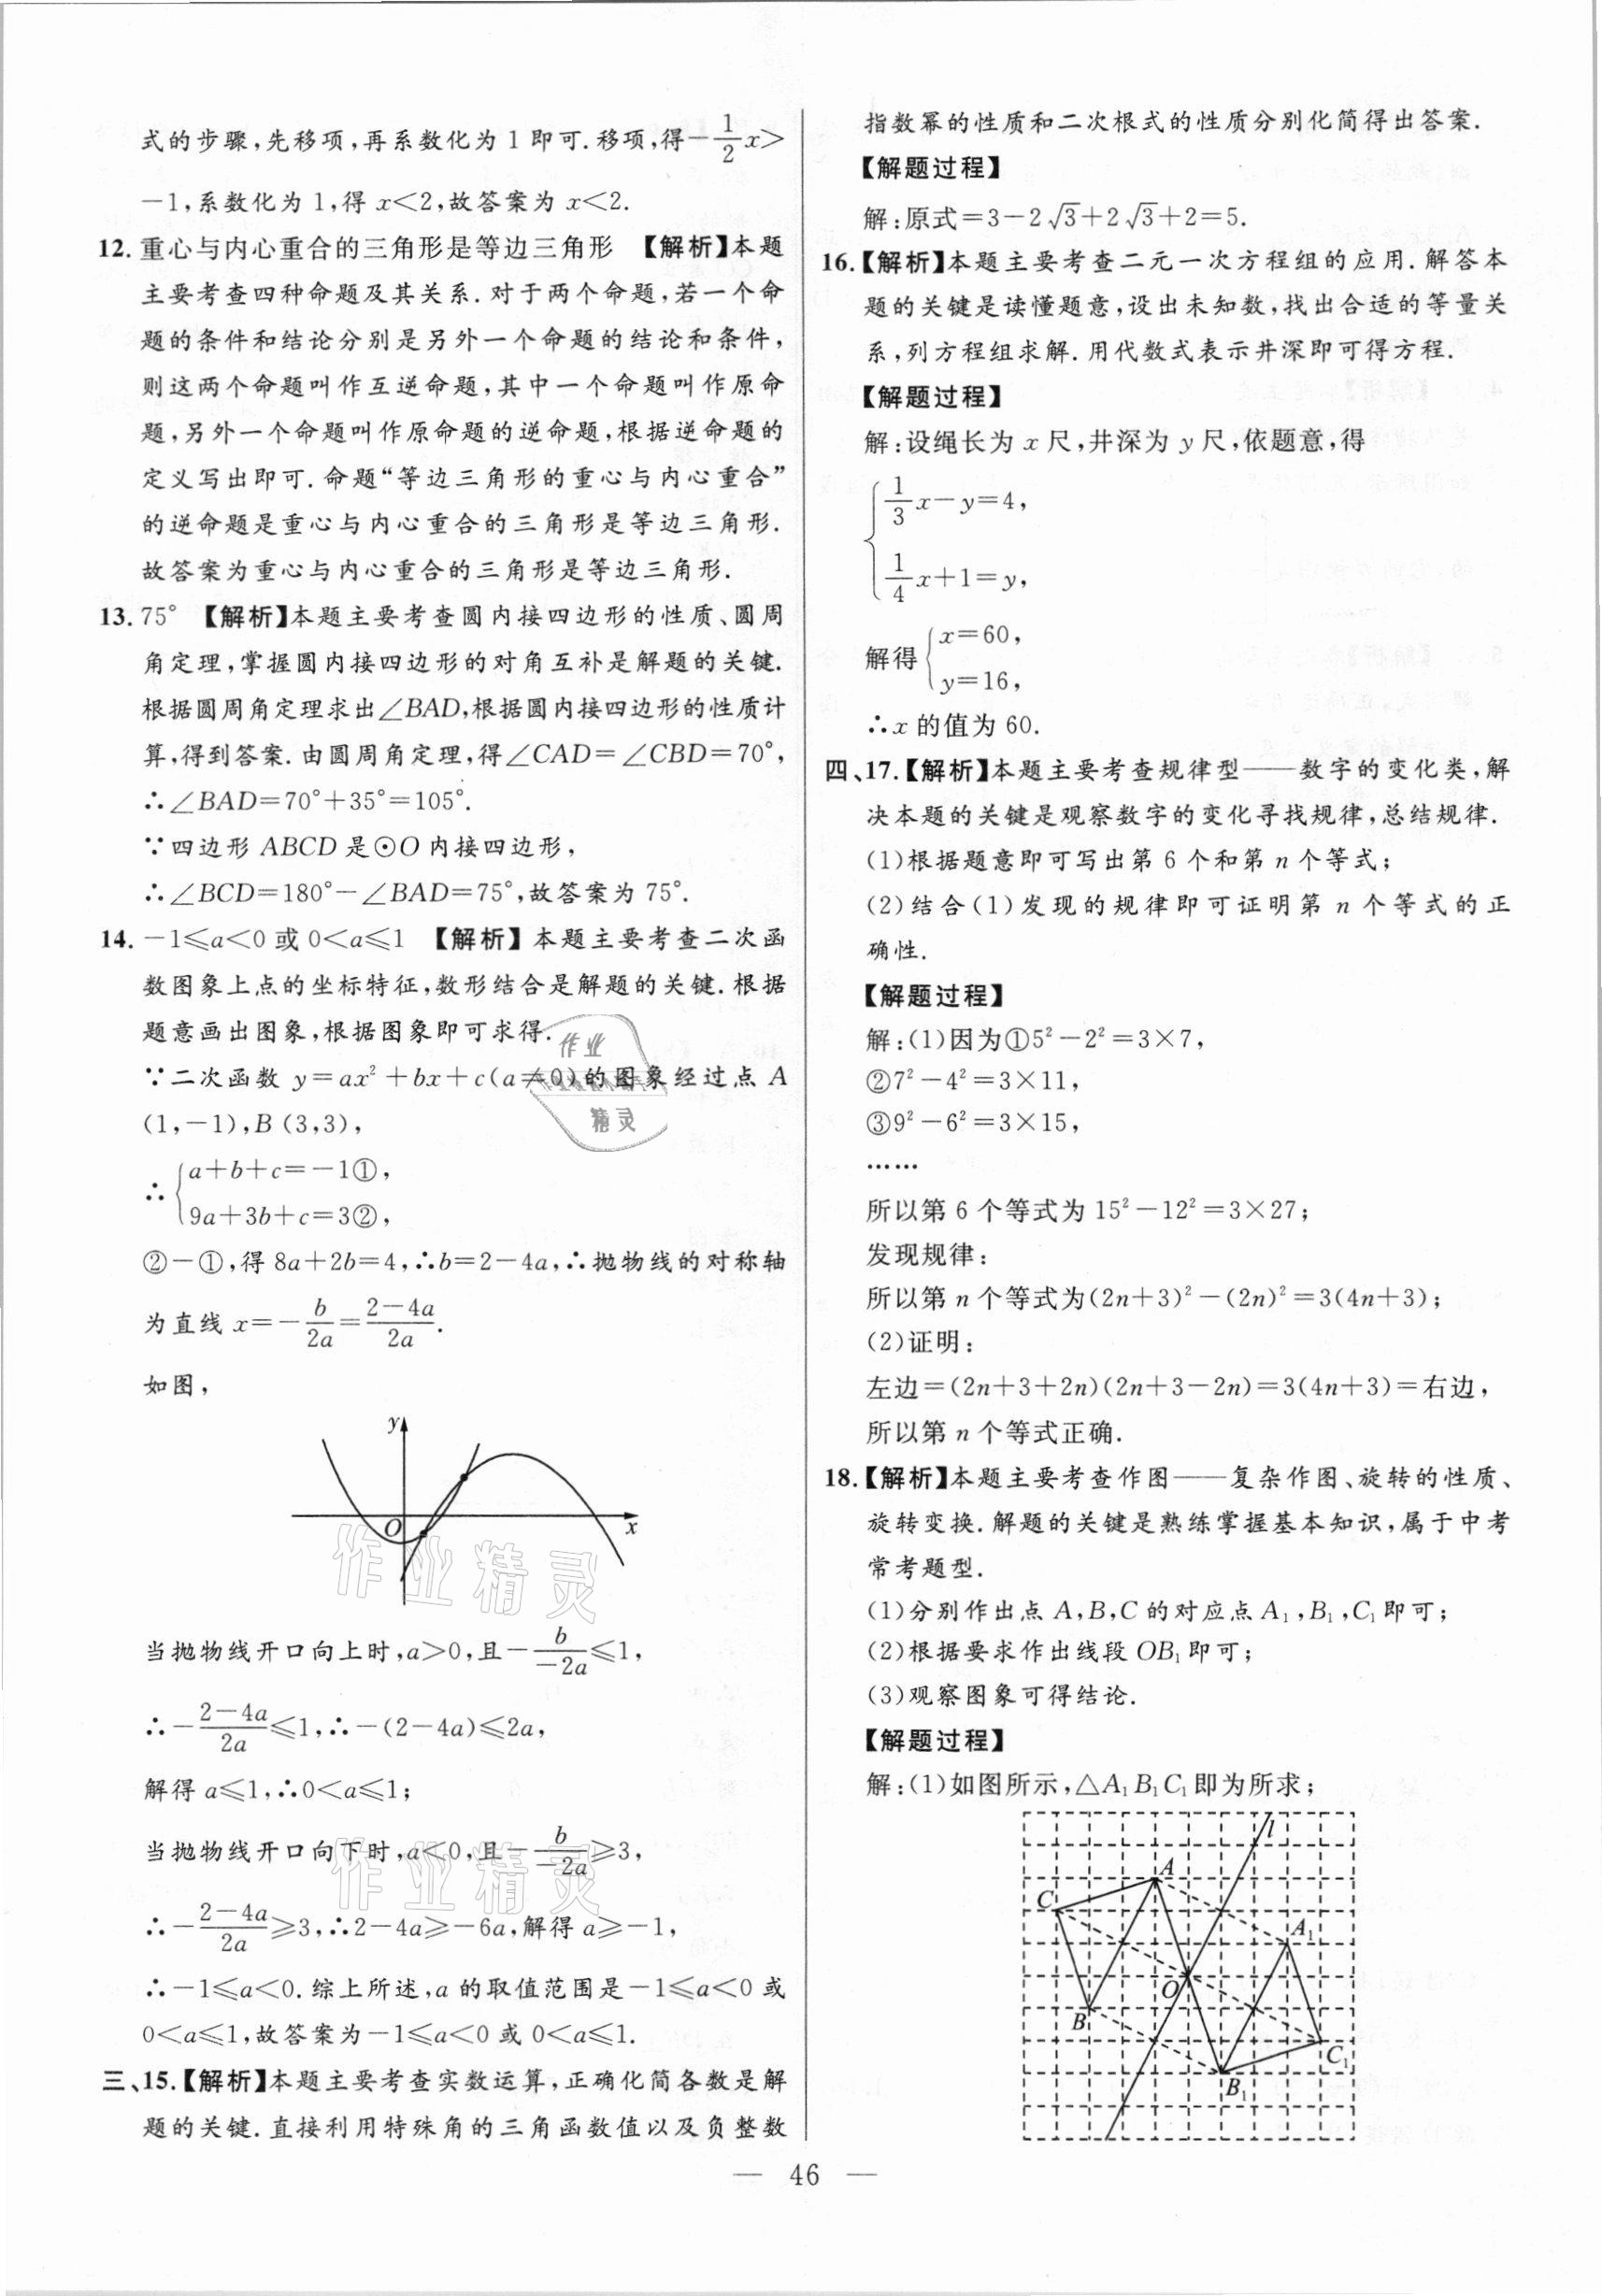 式的步骤,先移项,再系数化为 1 即可.移项,得-\frac{1}{2}x>
-1,系数化为 1,得 x<2,故答案为 x<2.
12. 重心与内心重合的三角形是等边三角形 【解析】本题
主要考查四种命题及其关系.对于两个命题,若一个命
题的条件和结论分别是另外一个命题的结论和条件,
则这两个命题叫作互逆命题,其中一个命题叫作原命
题,另外一个命题叫作原命题的逆命题,根据逆命题的
定义写出即可.命题“等边三角形的重心与内心重合”
的逆命题是重心与内心重合的三角形是等边三角形.
故答案为重心与内心重合的三角形是等边三角形.
13. 75° 【解析】本题主要考查圆内接四边形的性质、圆周
角定理,掌握圆内接四边形的对角互补是解题的关键.
根据圆周角定理求出∠BAD,根据圆内接四边形的性质计
算,得到答案.由圆周角定理,得∠CAD=∠CBD=70°,
∴∠BAD=70°+35°=105°.
∵四边形 ABCD 是⊙O 内接四边形,
∴∠BCD=180°-∠BAD=75°,故答案为 75°.
14. -1≤a<0 或 0<a≤1 【解析】本题主要考查二次函
数图象上点的坐标特征,数形结合是解题的关键.根据
题意画出图象,根据图象即可求得.
∵二次函数 y=ax²+bx+c(a≠0)的图象经过点 A
(1,-1),B (3,3),
∴{a+b+c=-1①,
9a+3b+c=3②,
②-①,得 8a+2b=4,∴b=2-4a,∴抛物线的对称轴
为直线 x=-\frac{b}{2a}=\frac{2-4a}{2a}.
如图,
y
O
x
当抛物线开口向上时,a>0,且-\frac{b}{-2a}≤1,
∴-\frac{2-4a}{2a}≤1,∴-(2-4a)≤2a,
解得 a≤1,∴0<a≤1;
当抛物线开口向下时,a<0,且-\frac{b}{-2a}≥3,
∴-\frac{2-4a}{2a}≥3,∴2-4a≥-6a,解得 a≥-1,
∴-1≤a<0.综上所述,a 的取值范围是-1≤a<0 或
0<a≤1,故答案为-1≤a<0 或 0<a≤1.
三、15.【解析】本题主要考查实数运算,正确化简各数是解
题的关键.直接利用特殊角的三角函数值以及负整数
指数幂的性质和二次根式的性质分别化简得出答案.
【解题过程】
解:原式=3-2√3+2√3+2=5.
16.【解析】本题主要考查二元一次方程组的应用.解答本
题的关键是读懂题意,设出未知数,找出合适的等量关
系,列方程组求解.用代数式表示井深即可得方程.
【解题过程】
解:设绳长为 x 尺,井深为 y 尺,依题意,得
{\frac{1}{3}x-y=4,
\frac{1}{4}x+1=y,
解得{x=60,
y=16,
∴x 的值为 60.
四、17.【解析】本题主要考查规律型——数字的变化类,解
决本题的关键是观察数字的变化寻找规律,总结规律.
(1)根据题意即可写出第 6 个和第 n 个等式;
(2)结合(1)发现的规律即可证明第 n 个等式的正
确性.
【解题过程】
解:(1)因为①5²-2²=3×7,
②7²-4²=3×11,
③9²-6²=3×15,
……
所以第 6 个等式为 15²-12²=3×27;
发现规律:
所以第 n 个等式为(2n+3)²-(2n)²=3(4n+3);
(2)证明:
左边=(2n+3+2n)(2n+3-2n)=3(4n+3)=右边,
所以第 n 个等式正确.
18.【解析】本题主要考查作图——复杂作图、旋转的性质、
旋转变换.解题的关键是熟练掌握基本知识,属于中考
常考题型.
(1)分别作出点 A,B,C 的对应点 A₁,B₁,C₁即可;
(2)根据要求作出线段 OB₁即可;
(3)观察图象可得结论.
【解题过程】
解:(1)如图所示,△A₁B₁C₁即为所求;
l
A
C
A₁
O
B
C₁
B₁
— 46 —
作业
精灵
作业精灵
作业精灵